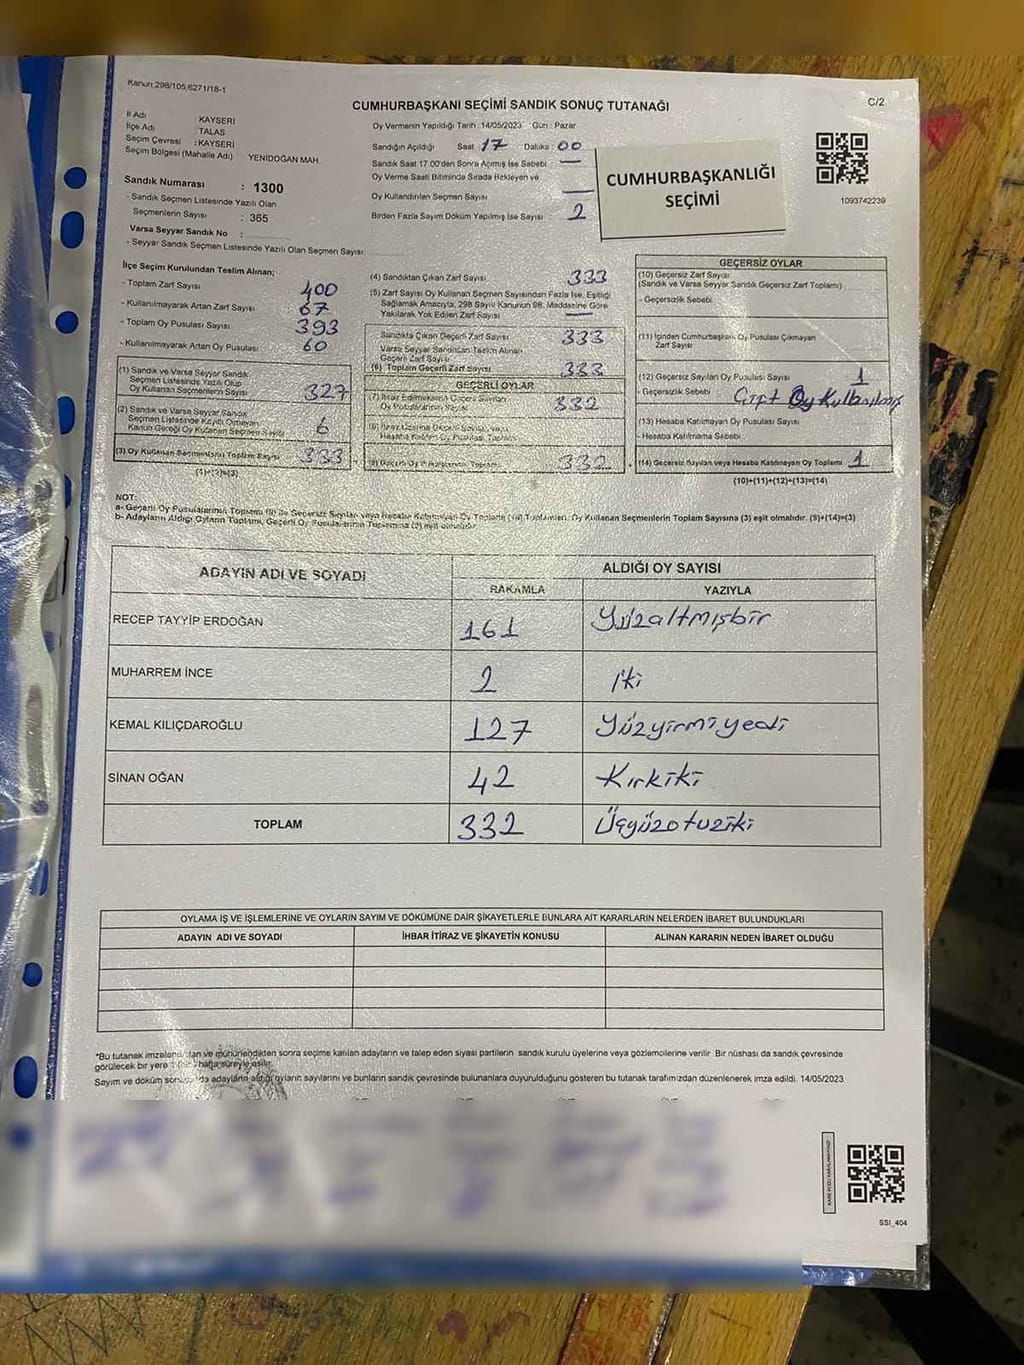 Kanun:298/105,6271/18-1
CUMHURBAŞKANI SEÇİMİ SANDIK SONUÇ TUTANAĞI
C/2
İl Adı KAYSERİ
İlçe Adı TALAS
Seçim Çevresi : KAYSERİ
Seçim Bölgesi (Mahalle Adı) YENİDOĞAN MAH.
Sandık Numarası : 1300
- Sandık Seçmen Listesinde Yazılı Olan
Seçmenlerin Sayısı : 365
Varsa Seyyar Sandık No :
- Seyyar Sandık Seçmen Listesinde Yazılı Olan Seçmen Sayısı
Oy Vermenin Yapıldığı Tarih :14/05/2023 Gün : Pazar
Sandığın Açıldığı Saat 17 Dakika : 00
Sandık Saat 17.00'den Sonra Açılmış İse Sebebi —
Oy Verme Saati Bitiminde Sırada Bekleyen ve
Oy Kullandırılan Seçmen Sayısı —
Birden Fazla Sayım Döküm Yapılmış İse Sayısı : 2
CUMHURBAŞKANLIĞI
SEÇİMİ
1093742239
İlçe Seçim Kurulundan Teslim Alınan;
- Toplam Zarf Sayısı 400
- Kullanılmayarak Artan Zarf Sayısı 67
- Toplam Oy Pusulası Sayısı 393
- Kullanılmayarak Artan Oy Pusulası 60
(1) Sandık ve Varsa Seyyar Sandık
Seçmen Listesinde Yazılı Olup
Oy Kullanan Seçmenlerin Sayısı 327
(2) Sandık ve Varsa Seyyar Sandık
Seçmen Listesinde Kayıtlı Olmayan
Kanun Gereği Oy Kullanan Seçmen Sayısı 6
(3) Oy Kullanan Seçmenlerin Toplam Sayısı 333
(1)+(2)=(3)
(4) Sandıktan Çıkan Zarf Sayısı 333
(5) Zarf Sayısı Oy Kullanan Seçmen Sayısından Fazla İse, Eşitliği
Sağlamak Amacıyla, 298 Sayılı Kanunun 98. Maddesine Göre
Yakılarak Yok Edilen Zarf Sayısı —
Sandıkta Çıkan Geçerli Zarf Sayısı 333
Varsa Seyyar Sandıktan Teslim Alınan
Geçerli Zarf Sayısı
(6) Toplam Geçerli Zarf Sayısı 333
GEÇERLİ OYLAR
(7) İtiraz Edilmeksizin Geçerli Sayılan
Oy Pusulalarının Sayısı 332
(8) İtiraz Üzerine Geçerli Sayılan veya
Hesaba Katılan Oy Pusulası Toplamı
(9) Geçerli Oy Pusulalarının Toplamı 332
GEÇERSİZ OYLAR
(10) Geçersiz Zarf Sayısı
(Sandık ve Varsa Seyyar Sandık Geçersiz Zarf Toplamı)
- Geçersizlik Sebebi
(11) İçinden Cumhurbaşkanı Oy Pusulası Çıkmayan
Zarf Sayısı
(12) Geçersiz Sayılan Oy Pusulası Sayısı 1
- Geçersizlik Sebebi Çift Oy Kullanılmış
(13) Hesaba Katılmayan Oy Pusulası Sayısı
- Hesaba Katılmama Sebebi
(14) Geçersiz Sayılan veya Hesaba Katılmayan Oy Toplamı 1
(10)+(11)+(12)+(13)=(14)
NOT:
a- Geçerli Oy Pusulalarının Toplamı (9) ile Geçersiz Sayılan veya Hesaba Katılmayan Oy Toplamı (14) Toplamları; Oy Kullanan Seçmenlerin Toplam Sayısına (3) eşit olmalıdır. (9)+(14)=(3)
b- Adayların Aldığı Oyların Toplamı, Geçerli Oy Pusulalarının Toplamına (9) eşit olmalıdır.
ADAYIN ADI VE SOYADI ALDIĞI OY SAYISI
RAKAMLA YAZIYLA
RECEP TAYYİP ERDOĞAN 161 Yüzaltmışbir
MUHARREM İNCE 2 İki
KEMAL KILIÇDAROĞLU 127 Yüzyirmiyedi
SİNAN OĞAN 42 Kırkiki
TOPLAM 332 Üçyüzotuziki
OYLAMA İŞ VE İŞLEMLERİNE VE OYLARIN SAYIM VE DÖKÜMÜNE DAİR ŞİKAYETLERLE BUNLARA AİT KARARLARIN NELERDEN İBARET BULUNDUKLARI
ADAYIN ADI VE SOYADI İHBAR İTİRAZ VE ŞİKAYETİN KONUSU ALINAN KARARIN NEDEN İBARET OLDUĞU
*Bu tutanak imzalandıktan ve mühürlendikten sonra seçime katılan adayların ve talep eden siyasi partilerin sandık kurulu üyelerine veya gözlemcilerine verilir. Bir nüshası da sandık çevresinde
görülecek bir yere 1 hafta süreyle asılır.
Sayım ve döküm sonucunda adayların aldığı oyların sayılarını ve bunların sandık çevresinde bulunanlara duyurulduğunu gösteren bu tutanak tarafımızdan düzenlenerek imza edildi. 14/05/2023
SSI_404